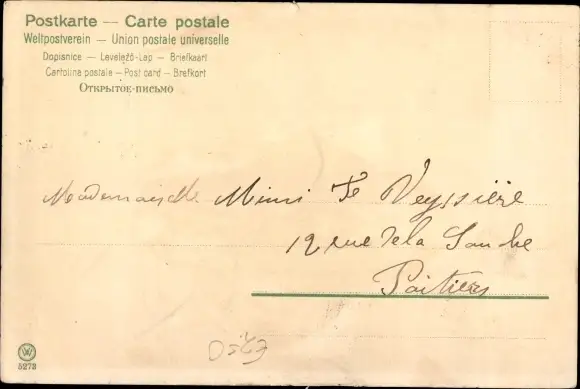 Postkarte — Carte postale
Weltpostverein — Union postale universelle
Dopisnice — Levelező-Lap — Briefkaart
Cartolina postale — Post card — Brefkort
Открытое-письмо
Mademoiselle Mimi Veyssière
12 rue de la
Poitiers
W
5272